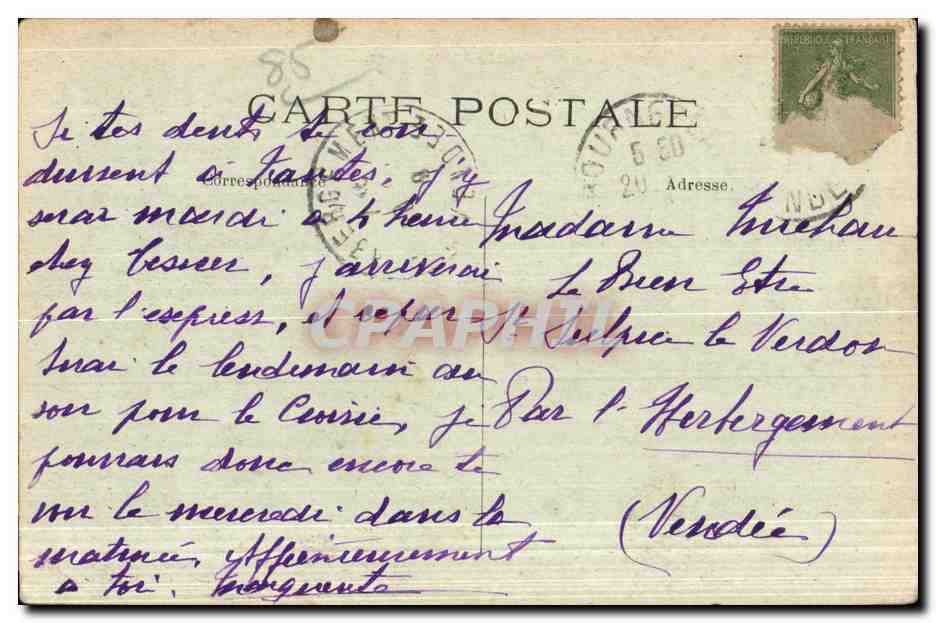 85
CARTE POSTALE
Correspondance
Adresse.
REPUBLIQUE FRANÇAISE
Si tes dents te con
duisent à Nantes, j'y
serai mardi à 4 heures
chez
, j'arriverai
par l'express, et repar
tirai le lendemain au
soir pour le Croisic, je
pourrais donc encore te
voir le mercredi dans la
matinée, Affectueusement
à toi. Marguerite
Madame Michau
Le Bien Etre
St Sulpice le Verdon
Par l'Herbergement
(Vendée)
CPAPHIL